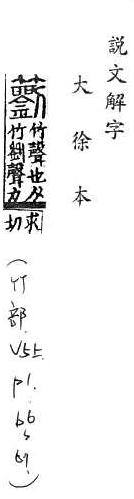 說文解字
大徐本
竹聲也从
竹劉聲力
求
切
(竹部 V5上 p1. 66、